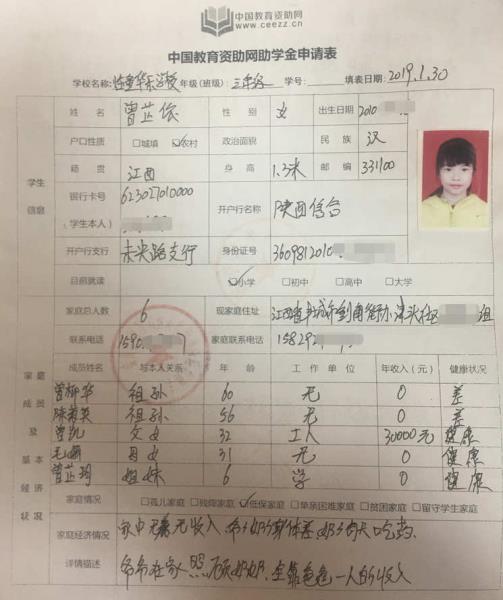 中国教育资助网
www.ceezz.cn
中国教育资助网助学金申请表
学校名称: 华东学校 年级(班级): 三年级 学号: 填表日期: 2019.1.30
姓名 曾芷依 性别 女 出生日期 2010
户口性质 □城填 ☑农村 政治面貌 民族 汉
学生 信息
籍贯 江西 身高 1.3米 邮编 331100
银行卡号 (学生本人) 623027010000 开户行名称 陕西信合
开户行支行 未央路支行 身份证号 3609812010
目前就读 ☑小学 □初中 □高中 □大学
家庭总人数 6 现家庭住址 江西省丰城市剑南街办 组
联系电话 1590 7 家庭联系电话 15829
家庭成员及基本经济状况
成员姓名 与本人关系 年龄 工作单位 年收入(元) 健康状况
曾柳华 祖孙 60 无 0 差
陈菊英 祖孙 56 无 0 差
曾凯 父女 32 工人 30000元 健康
毛 母女 31 无 0 健康
曾芷 姐妹 6 学 0 健康
家庭情况 □孤儿家庭 □残障家庭 ☑低保家庭 □单亲困难家庭 □贫困家庭 □留守学生家庭
家庭经济情况 家中无 无收入 爷爷奶奶身体差 奶奶每天吃药.
详情描述 爷爷在家照顾奶奶, 全靠爸爸一人的收入